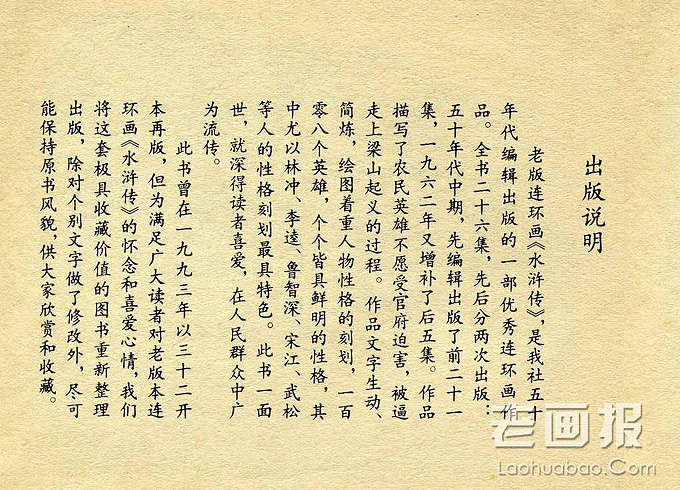 出版说明
老版连环画《水浒传》，是我社五十
年代编辑出版的一部优秀连环画作
品。全书二十六集，先后分两次出版：
五十年代中期，先编辑出版了前二十一
集，一九六二年又增补了后五集。作品
描写了农民英雄不愿受官府迫害，被逼
走上梁山起义的过程。作品文字生动、
简炼，绘图着重人物性格的刻划，一百
零八个英雄，个个皆具鲜明的性格，其
中尤以林冲、李逵、鲁智深、宋江、武松
等人的性格刻划最具特色。此书一面
世，就深得读者喜爱，在人民群众中广
为流传。
此书曾在一九九三年以三十二开
本再版，但为满足广大读者对老版本连
环画《水浒传》的怀念和喜爱心情，我们
将这套极具收藏价值的图书重新整理
出版，除对个别文字做了修改外，尽可
能保持原书风貌，供大家欣赏和收藏。
老画报
Laohuabao.Com